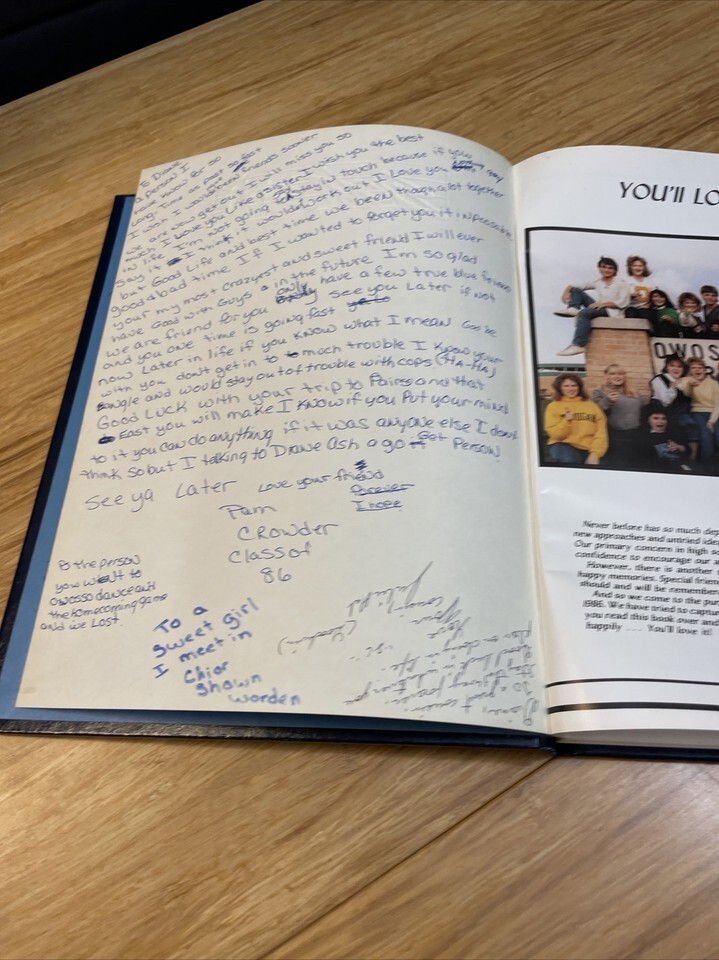 To Diane
a person I
have know for so
long. time as past so fast
I wish I would been friends sooner
we are now get out I will miss you so
much I Love you Like a sister I wish you the best
in life I'm not going stay in touch because if you
say it I think it wouldn't work out I Love you
but Good Life and best time we been though a lot together
good & bad time. If I wanted to forget you it inpossible
your my most crazyest and sweet friend I will ever
have Good with Guys in the future I'm so glad
we are friend for you only have a few true blue friend
and you one time is going fast see you Later if not
now Later in life if you know what I mean Good Luc
with you don't get in to much trouble I Know your
single and would stay out of trouble with cops (HA-HA)
Good Luck with your trip to Pairss and that
East you will make I know if you Put your mind
to it you can do anything if it was anyone else I don't
think so but I talking to Diane Ash a go Get Person
see ya Later Love your friend
forever
I hope
Pam
Crowder
Class of
86
To the person
you went to
owosso dance and
the homecoming game
and we Lost.
To a
sweet girl
I meet in
Chior
Shawn
Worden
YOU'll LO
OWOS
Never before has so much dep
new approaches and untried idea
Our primary concern in high s
confidence to encourage our a
However, there is another
happy memories. Special friend
should and will be remember
And so we come to the pu
1986. We have tried to captur
you read this book over and
happily .... You'll love it!